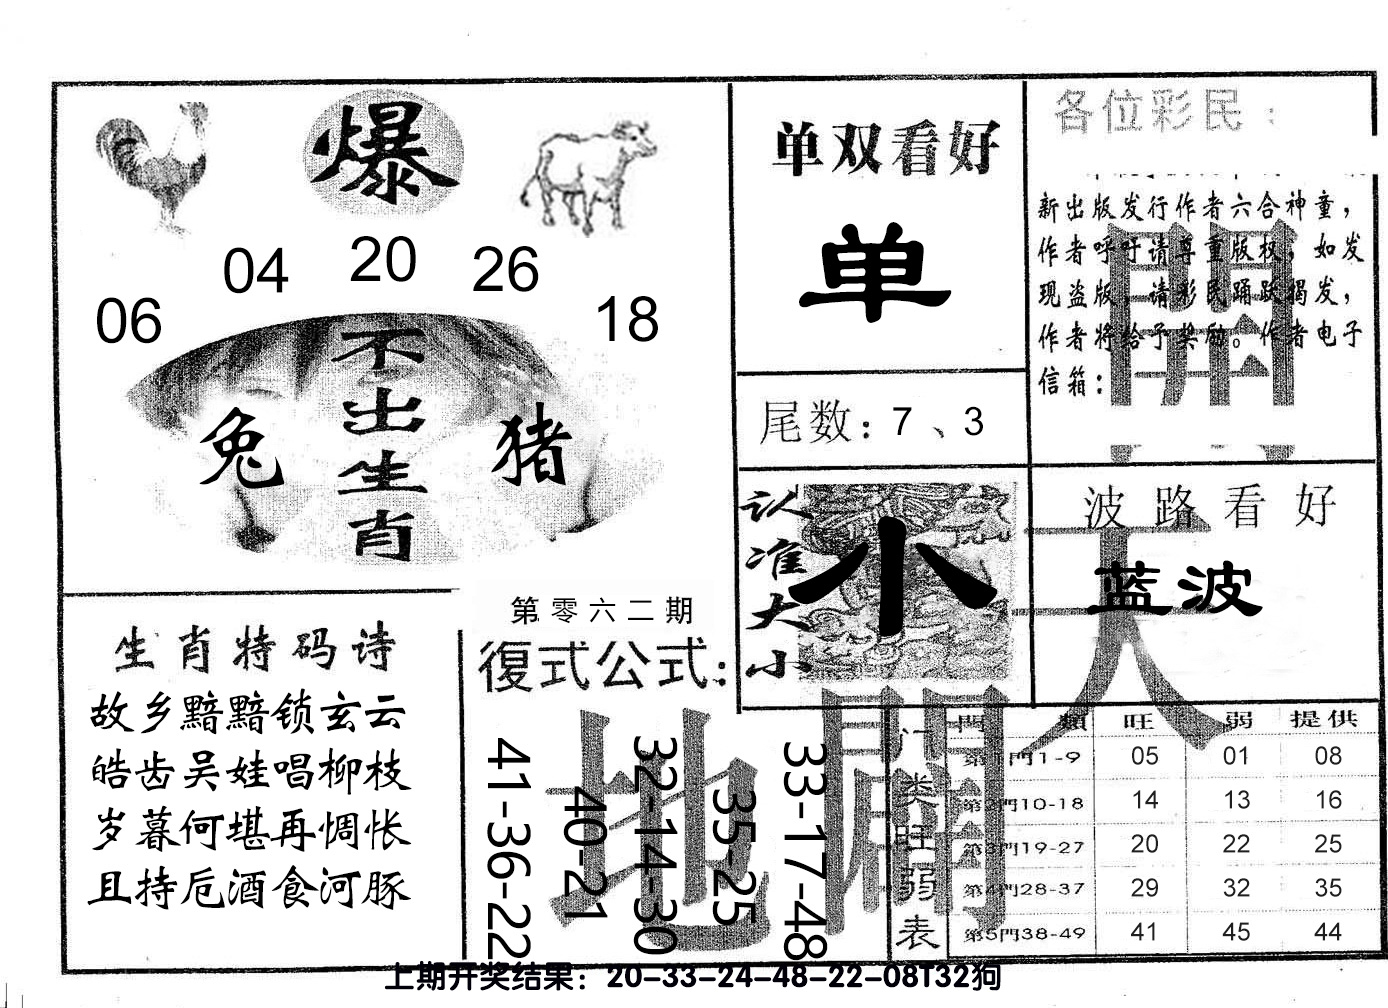 爆
04 20 26
06 18
不出生肖
兔 猪
生肖特码诗
故乡黯黯锁玄云
皓齿吴娃唱柳枝
岁暮何堪再惆怅
且持卮酒食河豚
第零六二期
復式公式:
41-36-22
40-21
32-14-30
35-25
33-17-48
单双看好
单
尾数: 7、3
认准大小
小
各位彩民:
新出版发行作者六合神童,
作者呼吁请尊重版权,如发
现盗版,请彩民踊跃揭发,
作者将给予奖励。作者电子
信箱:
波路看好
蓝波
天
地
開
門类旺弱表
門類 旺 弱 提供
第1門1-9 05 01 08
第2門10-18 14 13 16
第3門19-27 20 22 25
第4門28-37 29 32 35
第5門38-49 41 45 44
上期开奖结果: 20-33-24-48-22-08T32狗